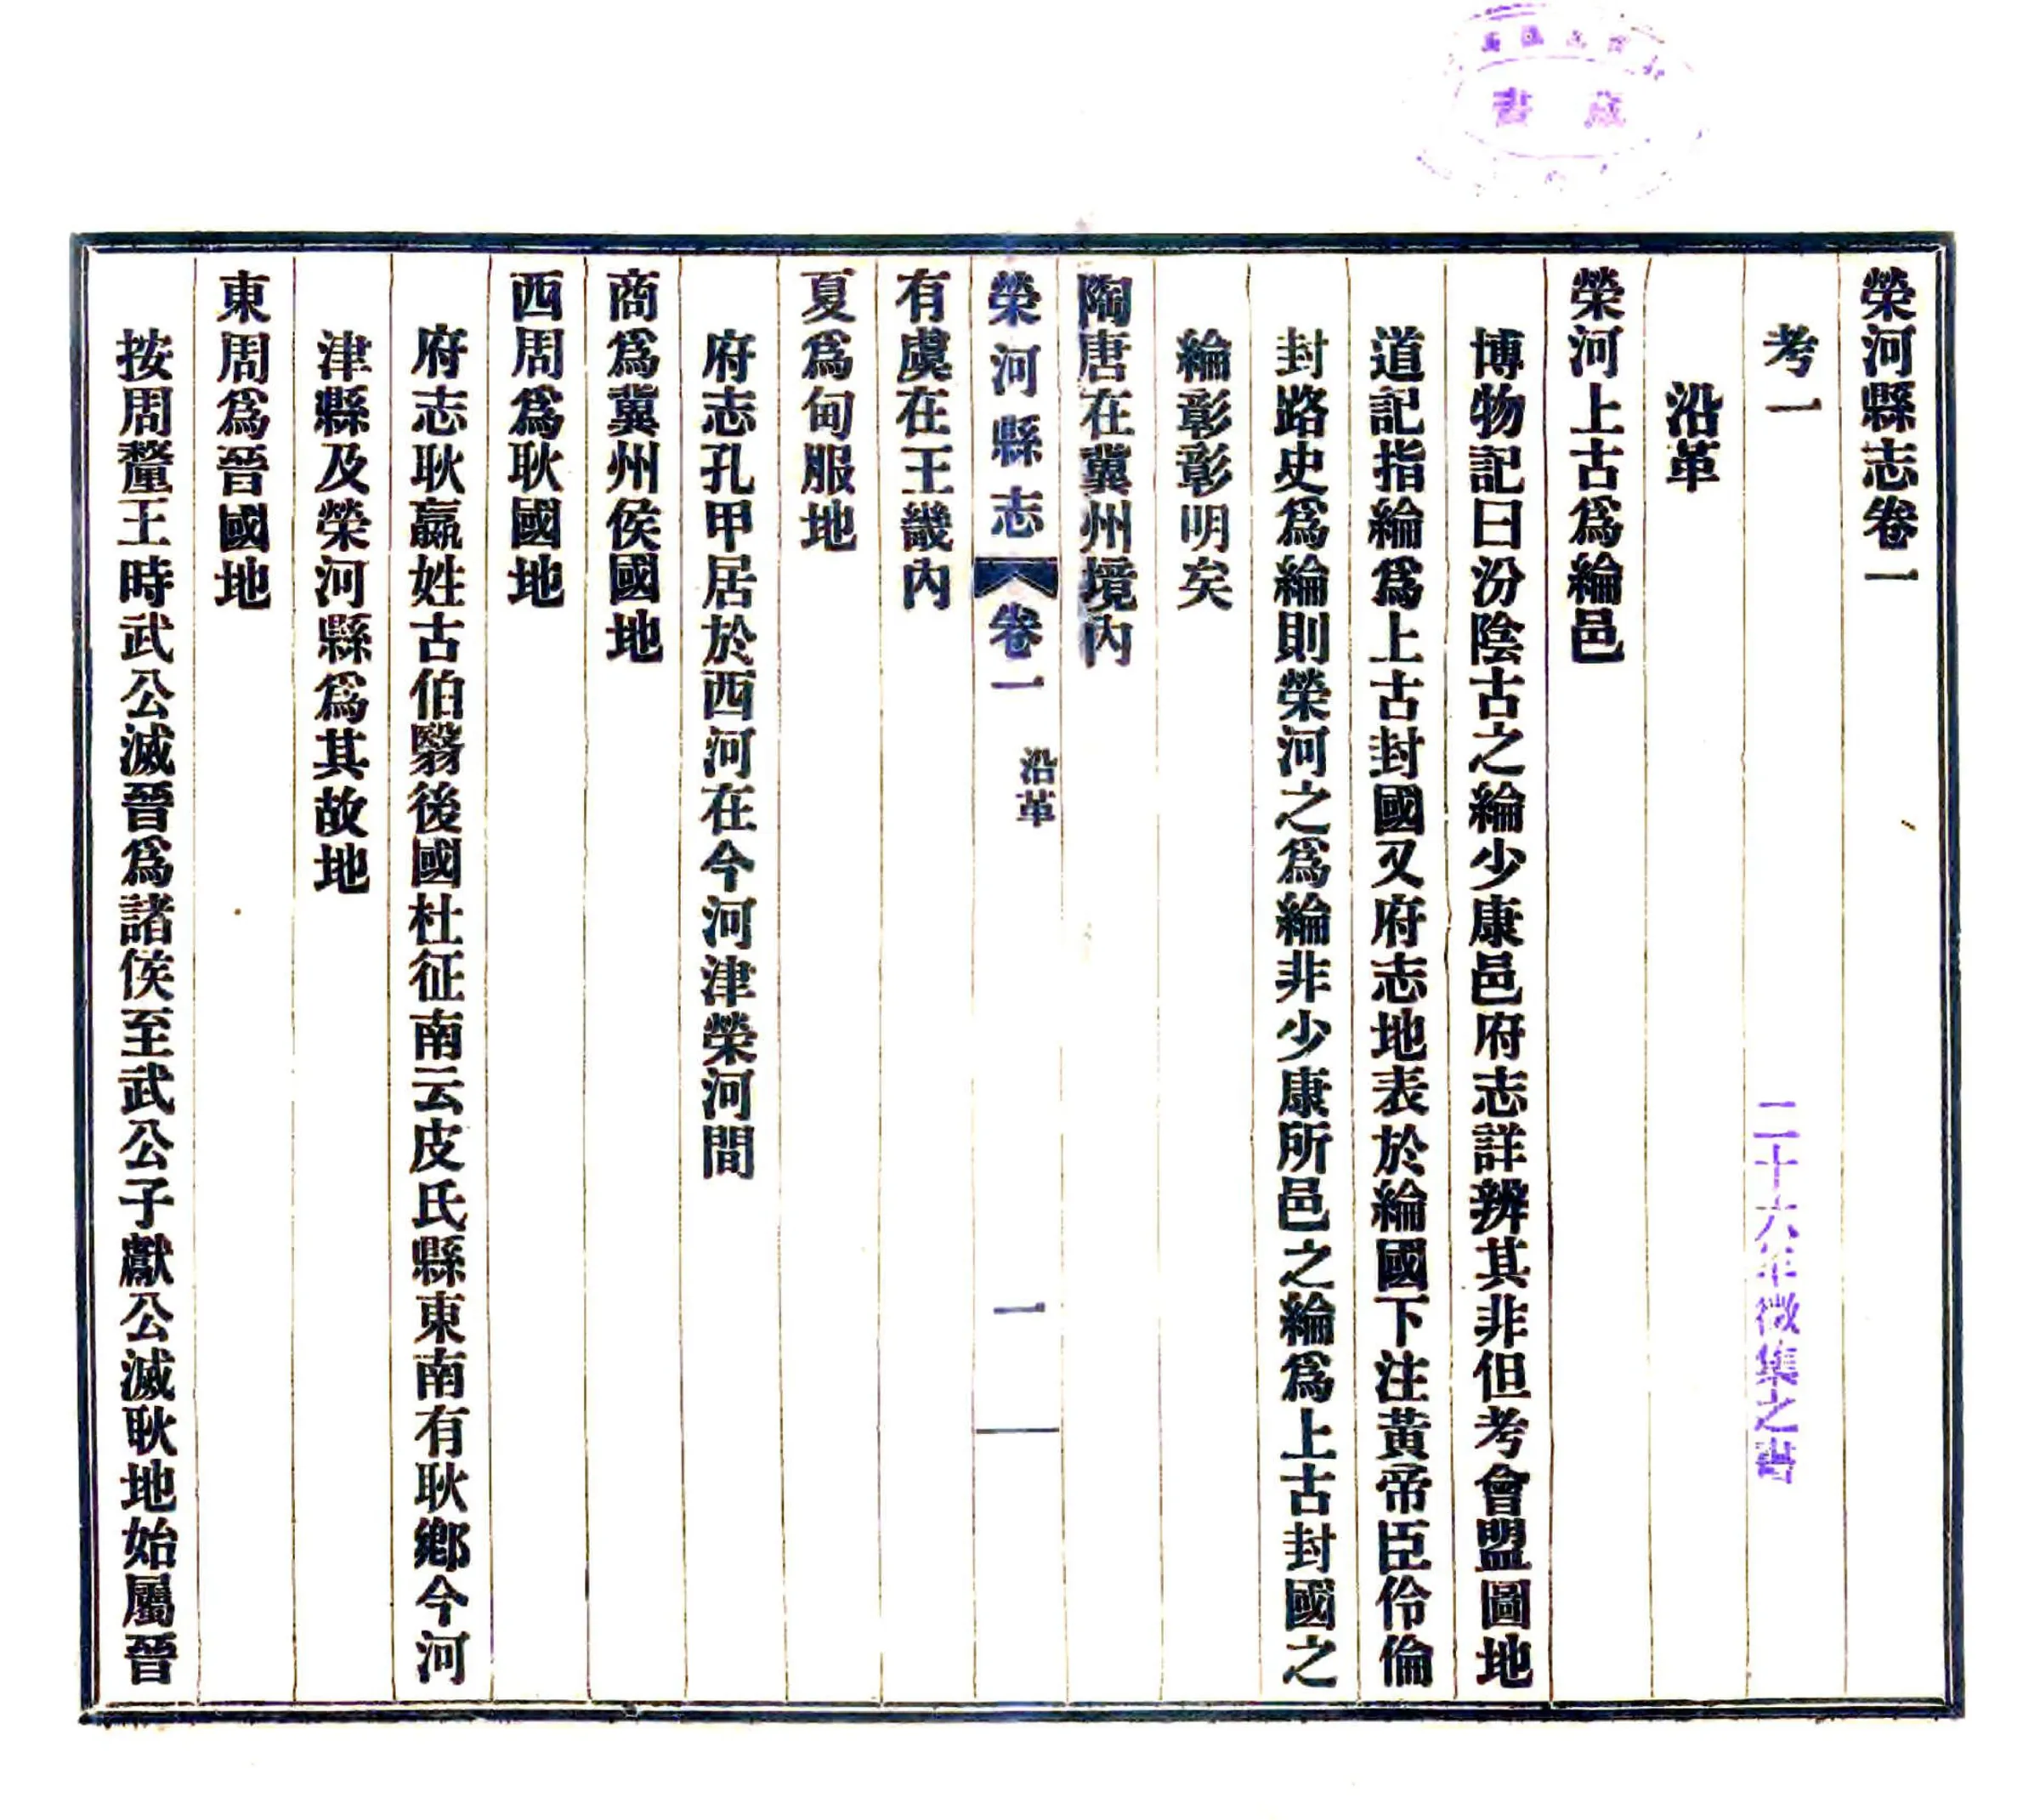 藏書
榮河縣志卷一
考一
二十六年徵集之書
沿革
榮河上古爲綸邑
博物記曰汾陰古之綸少康邑府志詳辨其非但考會盟圖地
道記指綸爲上古封國又府志地表於綸國下注黃帝臣伶倫
封路史爲綸則榮河之爲綸非少康所邑之綸爲上古封國之
綸彰彰明矣
陶唐在冀州境內
榮河縣志 卷一 沿革 一
有虞在王畿內
夏爲甸服地
府志孔甲居於西河在今河津榮河間
商爲冀州侯國地
西周爲耿國地
府志耿嬴姓古伯翳後國杜征南云皮氏縣東南有耿鄉今河
津縣及榮河縣爲其故地
東周爲晉國地
按周釐王時武公滅晉爲諸侯至武公子獻公滅耿地始屬晉